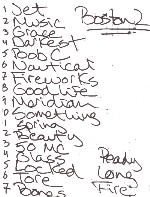 1 Jet
2 Music
3 Grace
4 Darkest
5 Bob C
6 Nautical
7 Fireworks
8 Good life
9 Meridian
0 Something
1 Spring
2 Beauty
3 50 Mc
4 Glass
5 Locked
6 Lore
7 Bones
Boston 2
Ready
Long
Fire